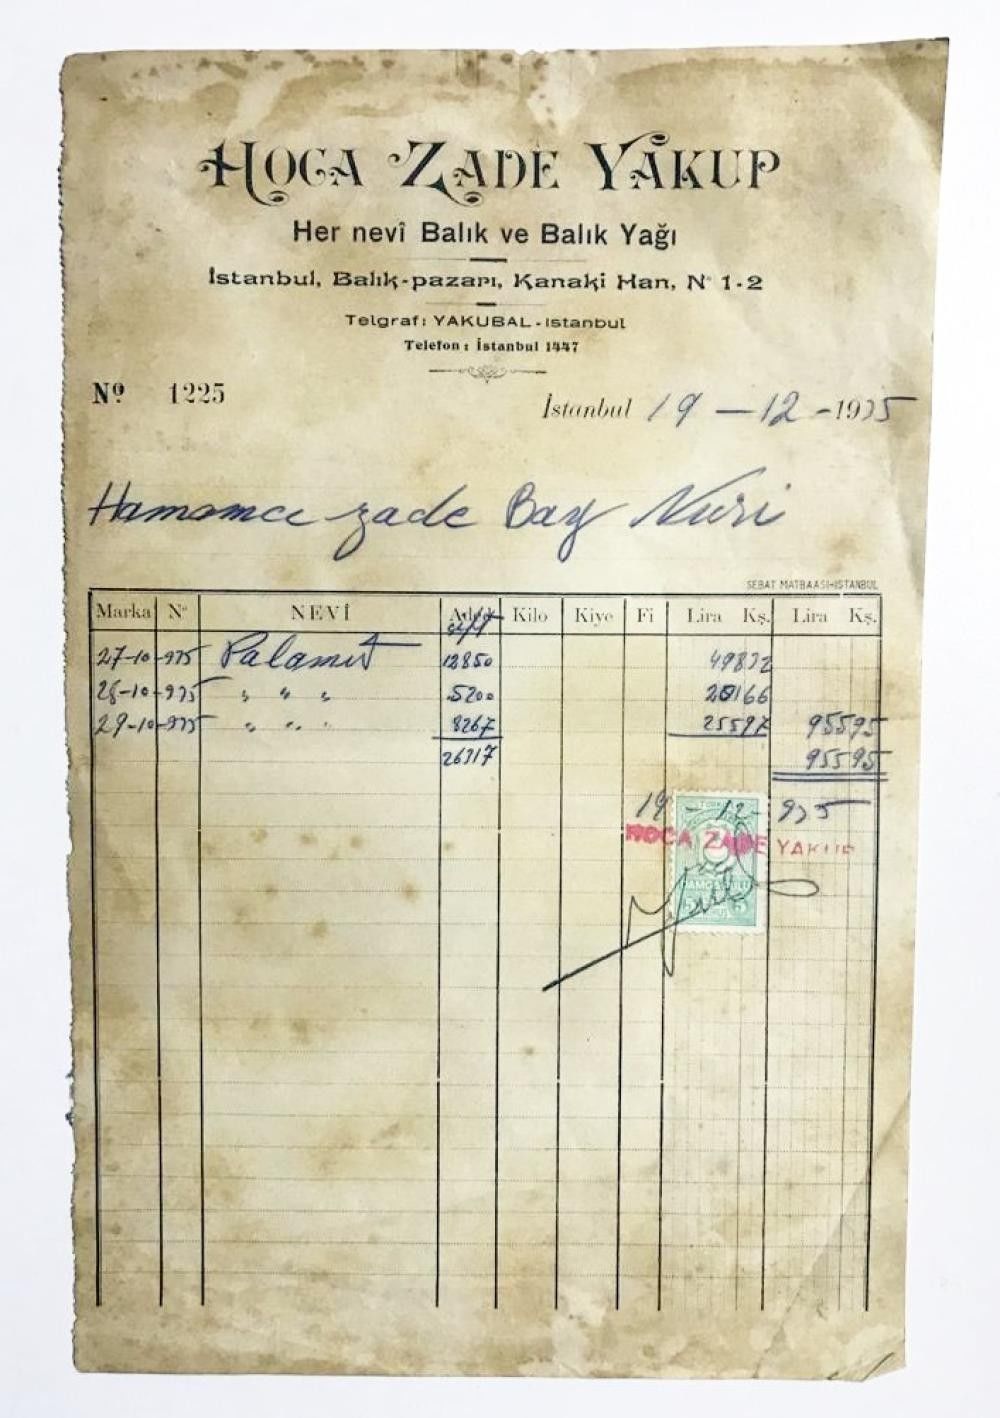 HOCA ZADE YAKUP
Her nevî Balık ve Balık Yağı
İstanbul, Balık-pazarı, Kanaki Han, N° 1-2
Telgraf: YAKUBAL-Istanbul
Telefon: İstanbul 1447
Nº 1225
İstanbul 19-12-1935
Hamamcı zade Bay Nuri
SEBAT MATBAASI-ISTANBUL
Marka N° NEVİ Aded Kilo Kiye Fi Lira Kş. Lira Kş.
27-10-935 Palamut 12850 49832
28-10-935 " " " 5200 20166
29-10-935 " " " 8267 25597 95595
26317 95595
19-12-935
HOCA ZADE YAKUP
DAMGA PULU
5